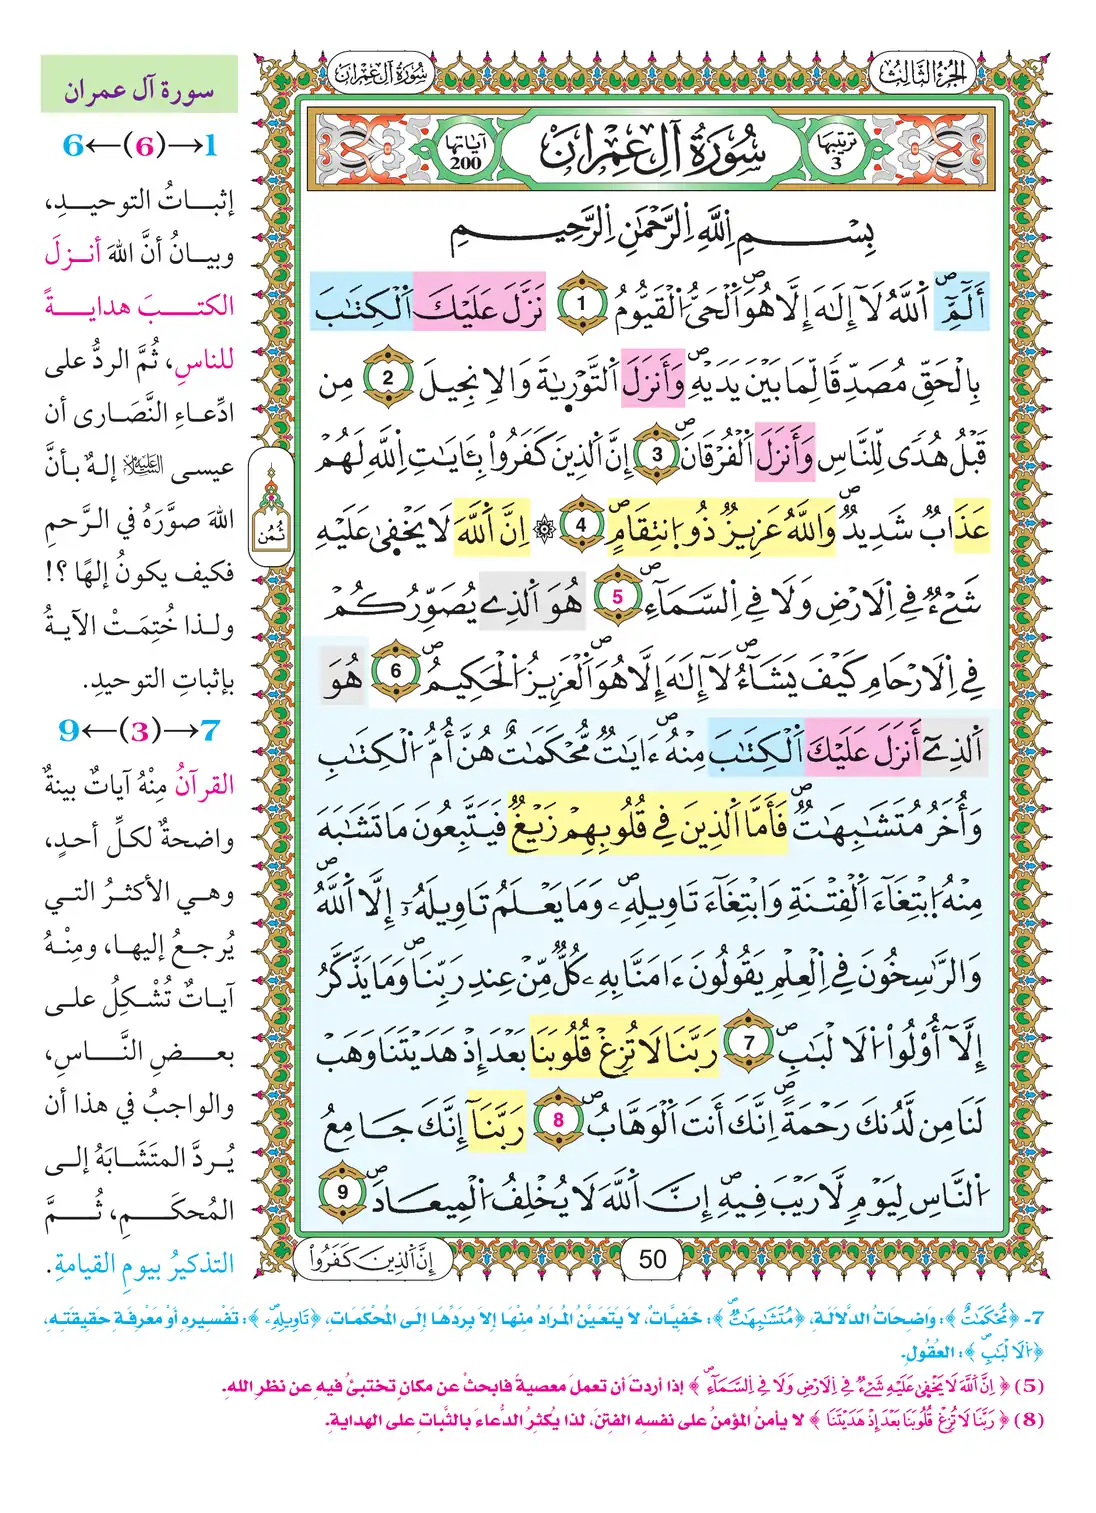 الجزء الثالث
سورة آل عمران
ترتيبها
3
سُورَةُ آلِ عِمْرَانَ
آياتها
200
بِسْمِ اِللَّهِ اِلرَّحْمَٰنِ اِلرَّحِيمِ
أَلَٓمِّٓۖ اَللَّهُ لَآ إِلَٰهَ إِلَّا هُوَۖ اَلْحَيُّ اُلْقَيُّومُ 1 نَزَّلَ عَلَيْكَ اَلْكِتَٰبَ
بِالْحَقِّ مُصَدِّقًا لِّمَا بَيْنَ يَدَيْهِۖ وَأَنزَلَ اَلتَّوْرَىٰةَ وَالِانجِيلَ 2 مِن
قَبْلُ هُدًى لِّلنَّاسِ وَأَنزَلَ اَلْفُرْقَانَۖ 3 إِنَّ اَلذِينَ كَفَرُواْ بِـَٔايَٰتِ اِللَّهِ لَهُمْ
عَذَابٌ شَدِيدٌۖ وَاللَّهُ عَزِيزٌ ذُو اُنتِقَامٍۖ 4 ۞ اِنَّ اَللَّهَ لَا يَخْفَىٰ عَلَيْهِ
شَےْءٌ فِي اِلَارْضِ وَلَا فِي اِلسَّمَآءِۖ 5 هُوَ اَلذِے يُصَوِّرُكُمْ
فِي اِلَارْحَامِ كَيْفَ يَشَآءُۖ لَآ إِلَٰهَ إِلَّا هُوَۖ اَلْعَزِيزُ اُلْحَكِيمُۖ 6 هُوَ
اَلذِےٓ أَنزَلَ عَلَيْكَ اَلْكِتَٰبَۖ مِنْهُ ءَايَٰتٌ مُّحْكَمَٰتٌ هُنَّ أُمُّ اُلْكِتَٰبِ
وَأُخَرُ مُتَشَٰبِهَٰتٌۖ فَأَمَّا اَلذِينَ فِي قُلُوبِهِمْ زَيْغٌ فَيَتَّبِعُونَ مَا تَشَٰبَهَ
مِنْهُ اُبْتِغَآءَ اَلْفِتْنَةِ وَابْتِغَآءَ تَاوِيلِهِۦۖ وَمَا يَعْلَمُ تَاوِيلَهُۥٓ إِلَّا اَللَّهُۖ
وَالرَّٰسِخُونَ فِي اِلْعِلْمِ يَقُولُونَ ءَامَنَّا بِهِۦ كُلٌّ مِّنْ عِندِ رَبِّنَاۖ وَمَا يَذَّكَّرُ
إِلَّآ أُوْلُواْ اُلَالْبَٰبِۖ 7 رَبَّنَا لَا تُزِغْ قُلُوبَنَا بَعْدَ إِذْ هَدَيْتَنَا وَهَبْ
لَنَا مِن لَّدُنكَ رَحْمَةًۖ اِنَّكَ أَنتَ اَلْوَهَّابُۖ 8 رَبَّنَآ إِنَّكَ جَامِعُ
اُلنَّاسِ لِيَوْمٍ لَّا رَيْبَ فِيهِۖ إِنَّ اَللَّهَ لَا يُخْلِفُ اُلْمِيعَادَۖ 9
ثُمُن
50
إِنَّ الَّذِينَ كَفَرُوا
سورة آل عمران
1→(6)←6
إثبـاتُ التوحيـدِ،
وبيـانُ أنَّ اللهَ أنـزلَ
الكتـبَ هدايـةً
للناسِ، ثُمَّ الردُّ على
ادِّعـاءِ النَّصَارى أن
عيسى عليه السلام إلهٌ بأنَّ
اللهَ صوَّرَهُ في الرَّحمِ
فكيف يكونُ إلهًا ؟!
ولـذا خُتِمَـتْ الآيـةُ
بإثباتِ التوحيدِ.
7→(3)←9
القرآنُ مِنْهُ آياتٌ بينةٌ
واضحةٌ لكـلِّ أحـدٍ،
وهـي الأكثـرُ التـي
يُرجـعُ إليهـا، ومِنْـهُ
آيـاتٌ تُشْـكِلُ علـى
بعـضِ النَّـاسِ،
والواجبُ في هذا أن
يُـردَّ المتَشَـابَهُ إلـى
المُحكَـمِ، ثُـمَّ
التذكيرُ بيومِ القيامةِ.
7- ﴿مُّحْكَمَٰتٌ﴾: وَاضِحَاتُ الدَّلَالَةِ، ﴿مُتَشَٰبِهَٰتٌۖ﴾: خَفِيَّاتٌ، لَا يَتَعَيَّنُ المُرَادُ مِنْهَا إِلَّا بِرَدِّهَا إِلَى المُحْكَمَاتِ، ﴿تَاوِيلِهِۦۖ﴾: تَفْسِيرِهِ أَوْ مَعْرِفَةِ حَقِيقَتِهِ،
﴿اُلَالْبَٰبِۖ﴾: العُقُولِ.
(5) ﴿اِنَّ اَللَّهَ لَا يَخْفَىٰ عَلَيْهِ شَےْءٌ فِي اِلَارْضِ وَلَا فِي اِلسَّمَآءِۖ﴾ إذا أردتَ أن تعملَ معصيةً فابحثْ عن مكانٍ تختبئُ فيهِ عن نظرِ اللهِ.
(8) ﴿رَبَّنَا لَا تُزِغْ قُلُوبَنَا بَعْدَ إِذْ هَدَيْتَنَا﴾ لا يأمنُ المؤمنُ على نفسِه الفتنَ، لذا يُكثرُ الدُّعاءَ بالثَّباتِ على الهدايةِ.